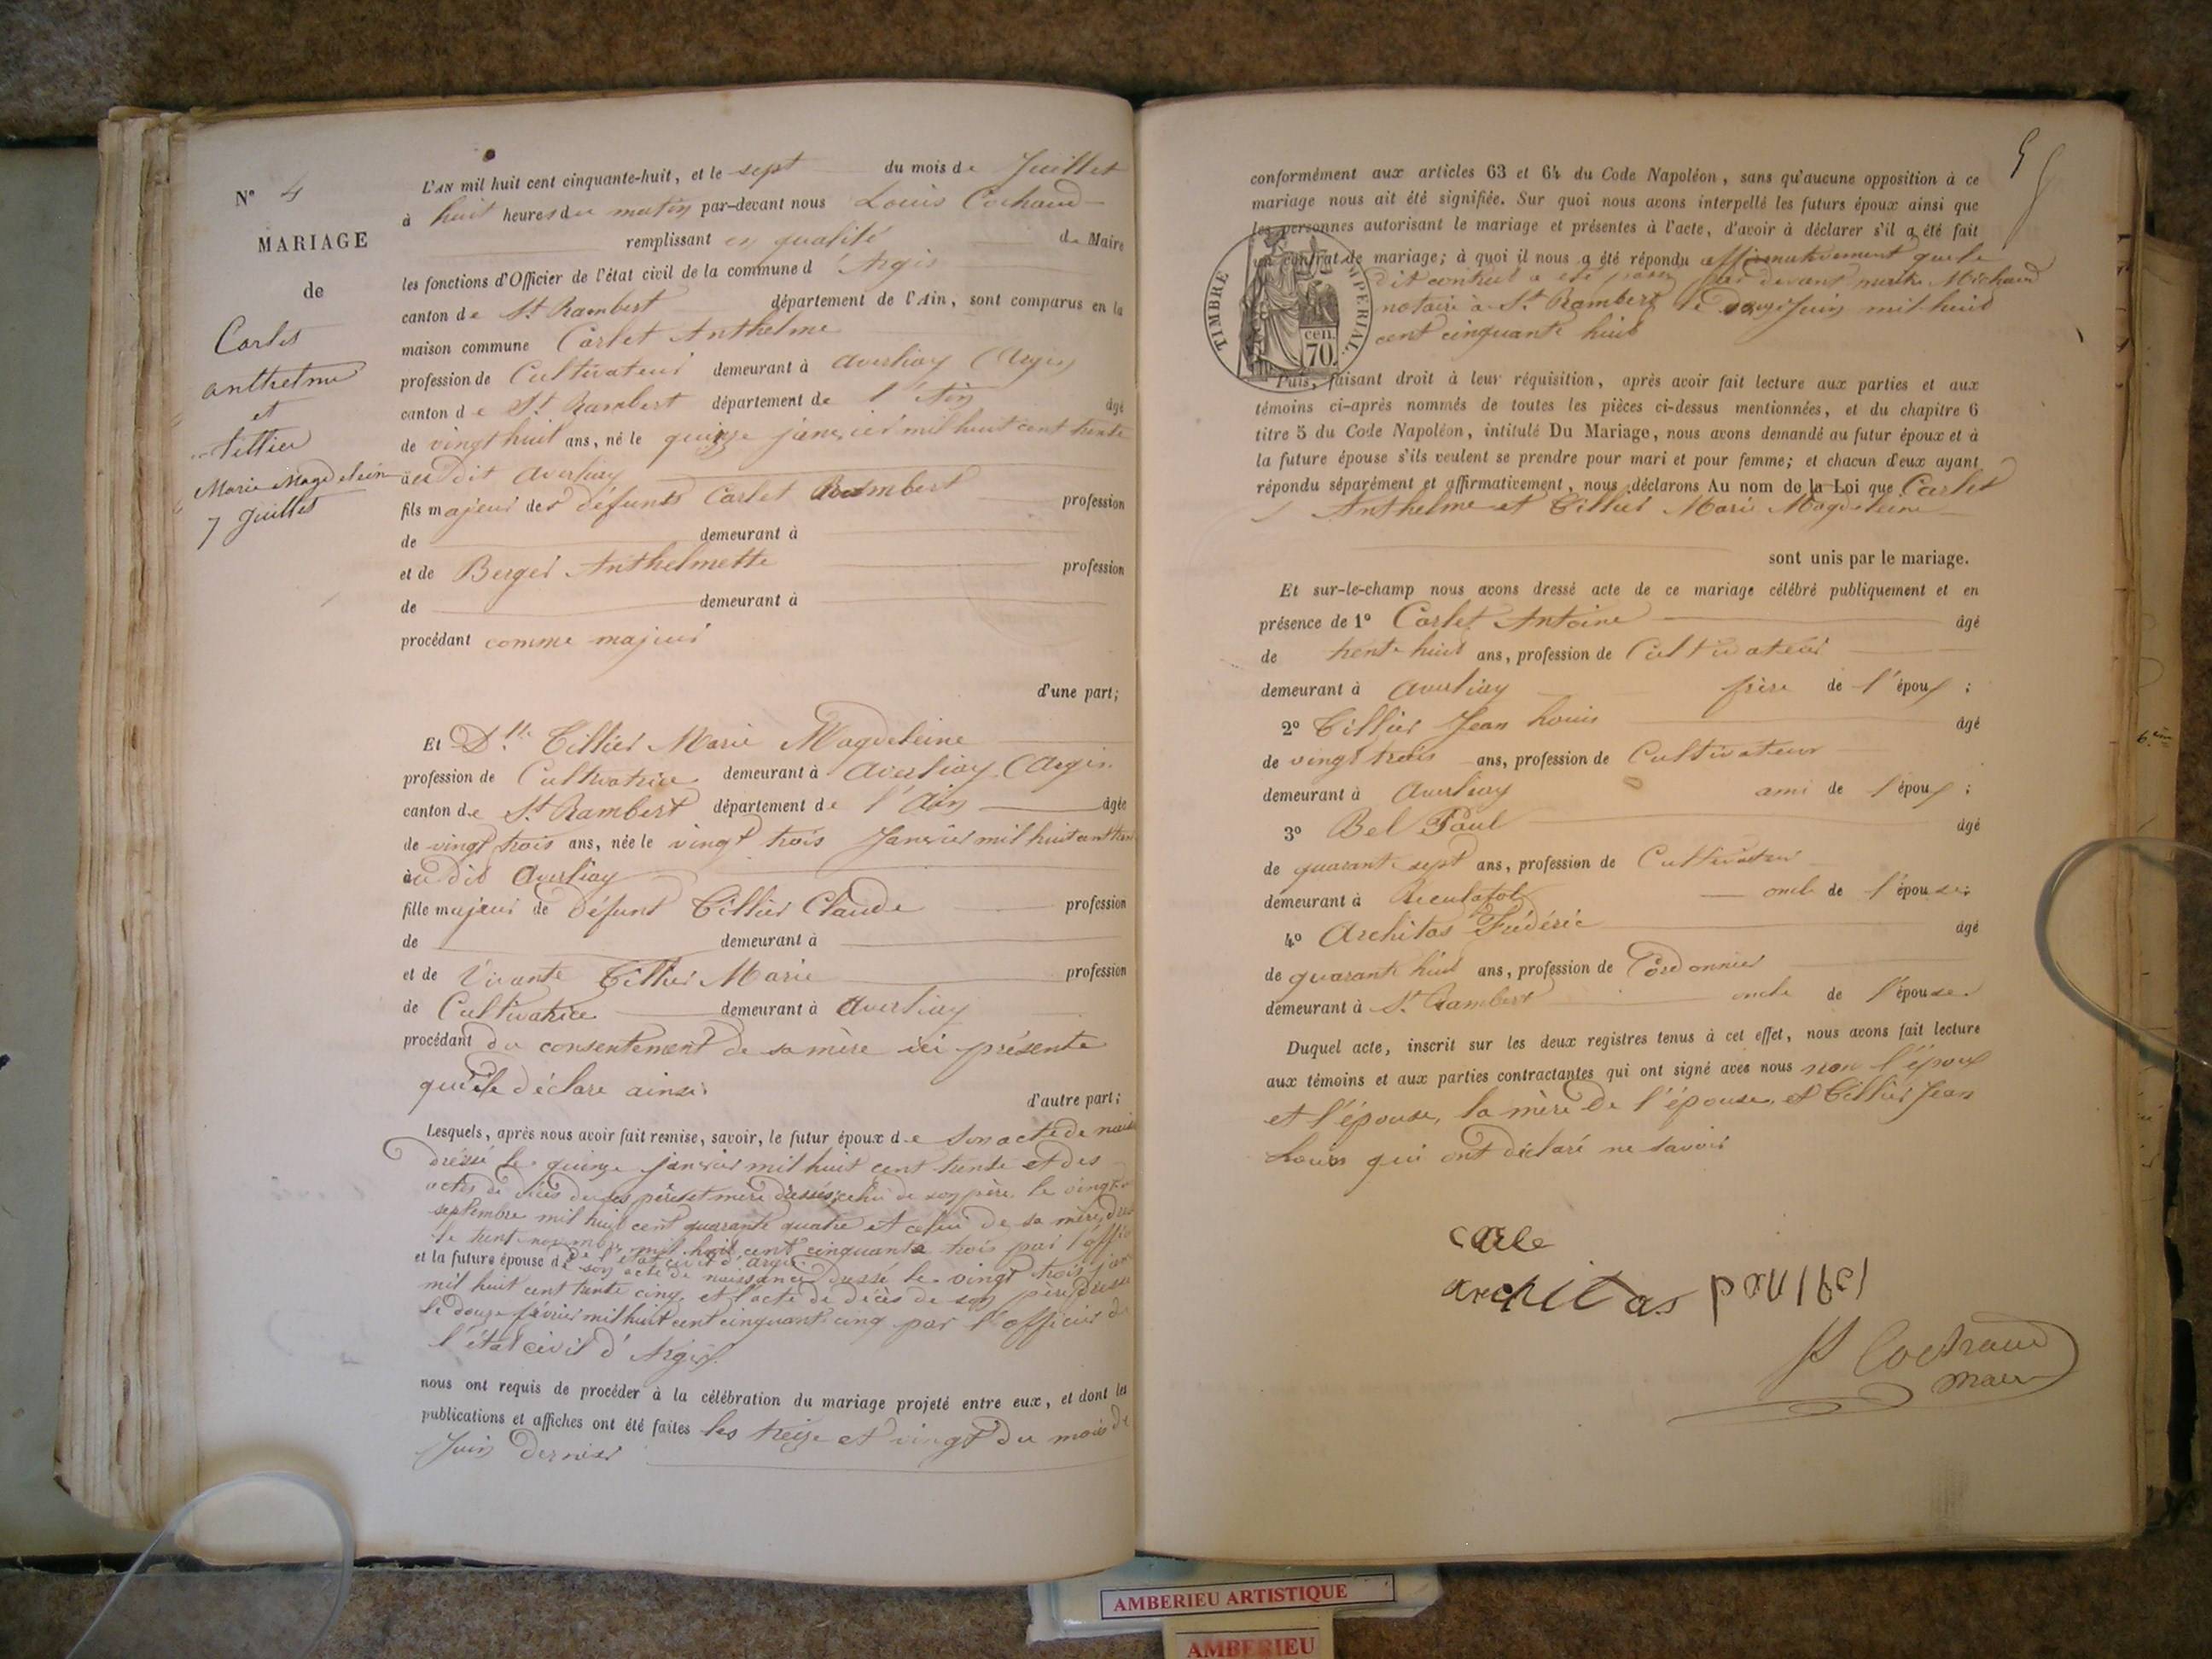 N° 4
MARIAGE
de
Carlet
anthelme
et
tillier
Marie Magdeleine
7 Juillet
L'AN mil huit cent cinquante-huit, et le sept du mois de Juillet
à huit heures du matin par-devant nous Louis Cochaud
remplissant en qualité de Maire
les fonctions d'Officier de l'état civil de la commune d'Argis
canton de St Rambert département de l'Ain, sont comparus en la
maison commune Carlet Anthelme
profession de Cultivateur demeurant à Averliay (Argis)
canton de St Rambert département de l'Ain âgé
de vingt huit ans, né le quinze janvier mil huit cent trente
au dit Averliay
fils majeur des défunts Carlet Rambert profession
de demeurant à
et de Berger Anthelmette profession
de demeurant à
procédant comme majeur
d'une part;
Et Dlle Tillier Marie Magdeleine
profession de Cultivatrice demeurant à Averliay (Argis
canton de St Rambert département de l'Ain âgée
de vingt trois ans, née le vingt trois Janvier mil huit cent
au dit Averliay
fille majeur de défunt Tillier Claude profession
de demeurant à
et de Vivante Tillier Marie profession
de Cultivatrice demeurant à Averliay
procédant du consentement de sa mère ici présente
qui le déclare ainsi.
d'autre part;
Lesquels, après nous avoir fait remise, savoir, le futur époux de son acte de
dressé le quinze janvier mil huit cent trente et des
actes de décès de ses père et mère dressés, celui de son père, le vingt
septembre mil huit cent quarante quatre et celui de sa mère,
le trente novembre mil huit cent cinquante trois par l'
de l'état civil d'Argis.
et la future épouse de son acte de naissance dressé le vingt trois
mil huit cent trente cinq et l'acte de décès de son père dressé
le douze février mil huit cent cinquante cinq par l'officier de
l'état civil d'Argis.
nous ont requis de procéder à la célébration du mariage projeté entre eux, et dont les
publications et affiches ont été faites les treize et vingt du mois de
Juin dernier
conformément aux articles 63 et 64 du Code Napoléon, sans qu'aucune opposition à ce
mariage nous ait été signifiée. Sur quoi nous avons interpellé les futurs époux ainsi que
les personnes autorisant le mariage et présentes à l'acte, d'avoir à déclarer s'il a été fait
un contrat de mariage; à quoi il nous a été répondu affirmativement que le
dit contrat a été passé par devant maître Michaud
notaire à St Rambert le Juin mil huit
cent cinquante huit
TIMBRE IMPERIAL.
cen.
70.
Puis, faisant droit à leur réquisition, après avoir fait lecture aux parties et aux
témoins ci-après nommés de toutes les pièces ci-dessus mentionnées, et du chapitre 6
titre 5 du Code Napoléon, intitulé Du Mariage, nous avons demandé au futur époux et à
la future épouse s'ils veulent se prendre pour mari et pour femme; et chacun d'eux ayant
répondu séparément et affirmativement, nous déclarons Au nom de la Loi que Carlet
Anthelme et Tillier Marie Magdeleine
sont unis par le mariage.
Et sur-le-champ nous avons dressé acte de ce mariage célébré publiquement et en
présence de 1° Carlet Antoine âgé
de trente huit ans, profession de Cultivateur
demeurant à Averliay frère de l'époux;
2° Tillier Jean Louis âgé
de vingt trois ans, profession de Cultivateur
demeurant à Averliay ami de l'époux;
3° Bel Paul âgé
de quarante sept ans, profession de Cultivateur
demeurant à oncle de l'épouse;
4° Architas Frédéric âgé
de quarante huit ans, profession de Cordonnier
demeurant à St Rambert oncle de l'épouse.
Duquel acte, inscrit sur les deux registres tenus à cet effet, nous avons fait lecture
aux témoins et aux parties contractantes qui ont signé avec nous non l'époux
et l'épouse, la mère de l'épouse, et Tillier Jean
Louis qui ont déclaré ne savoir
carle
architas paul bel
Cochaud
maire
AMBERIEU ARTISTIQUE
AMBERIEU